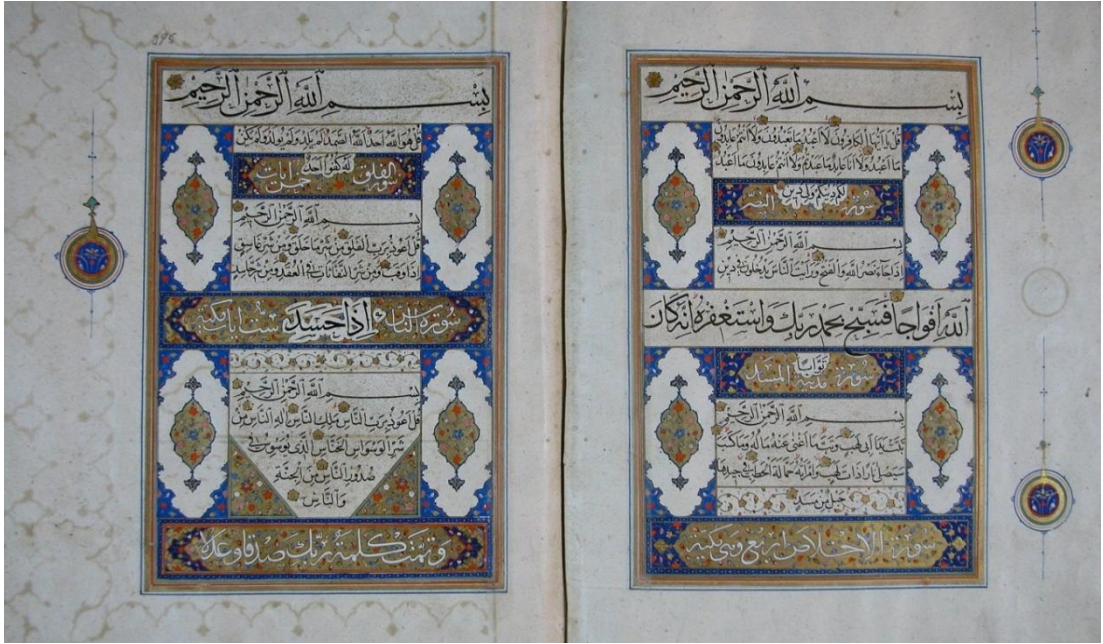 بسم الله الرحمن الرحيم
قل يا أيها الكافرون لا أعبد ما تعبدون ولا أنتم عابدون
ما أعبد ولا أنا عابد ما عبدتم ولا أنتم عابدون ما أعبد
لكم دينكم ولي دين
سورة النصر
بسم الله الرحمن الرحيم
إذا جاء نصر الله والفتح ورأيت الناس يدخلون في دين
الله أفواجا فسبح بحمد ربك واستغفره إنه كان
توابا
سورة المسد مدنية
بسم الله الرحمن الرحيم
تبت يدا أبي لهب وتب ما أغنى عنه ماله وما كسب
سيصلى نارا ذات لهب وامرأته حمالة الحطب في جيدها
حبل من مسد
سورة الإخلاص أربع وهي مكية
بسم الله الرحمن الرحيم
قل هو الله أحد الله الصمد لم يلد ولم يولد ولم يكن
له كفوا أحد
سورة الفلق خمس آيات
بسم الله الرحمن الرحيم
قل أعوذ برب الفلق من شر ما خلق ومن شر غاسق
إذا وقب ومن شر النفاثات في العقد ومن شر حاسد
إذا حسد
سورة الناس ست آيات مكية
بسم الله الرحمن الرحيم
قل أعوذ برب الناس ملك الناس إله الناس من
شر الوسواس الخناس الذي يوسوس في
صدور الناس من الجنة
والناس
وتمت كلمة ربك صدقا وعدلا